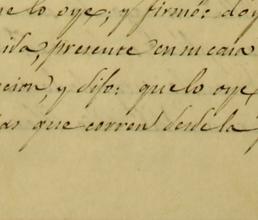 e lo oye; y firmó: doy
ida, presente en su casa
cion, y dijo: que lo oye,
ias que corren desde la